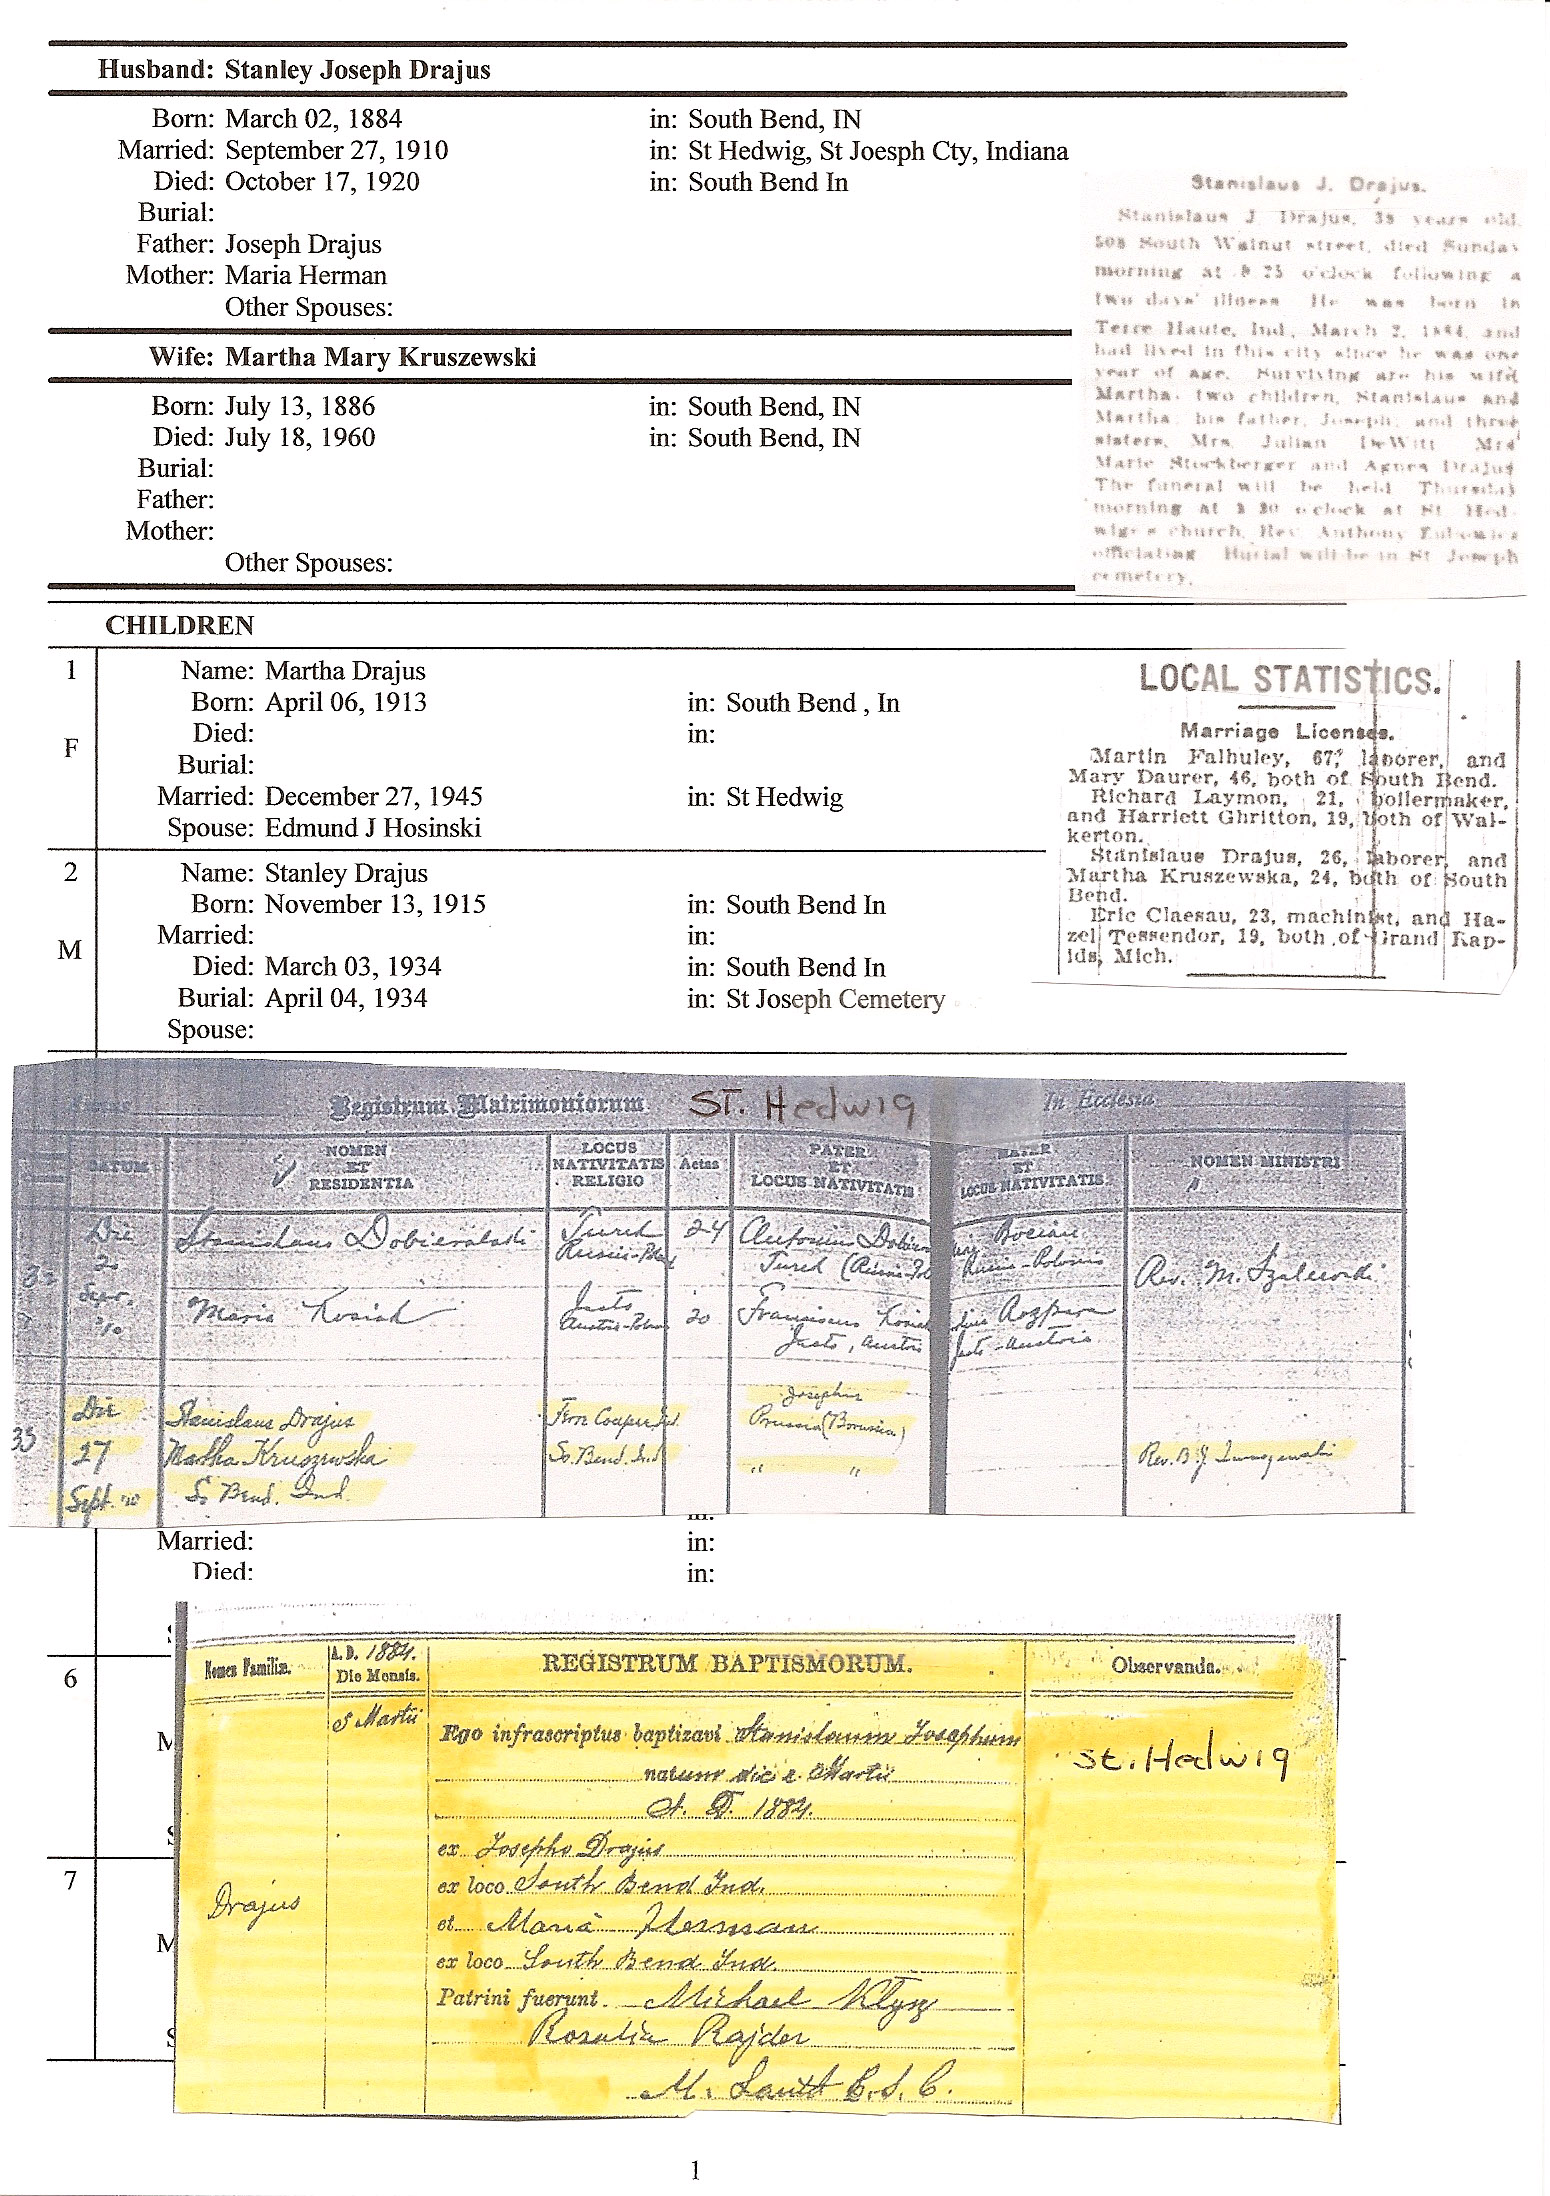 Husband: Stanley Joseph Drajus
Born: March 02, 1884 in: South Bend, IN
Married: September 27, 1910 in: St Hedwig, St Joesph Cty, Indiana
Died: October 17, 1920 in: South Bend In
Burial:
Father: Joseph Drajus
Mother: Maria Herman
Other Spouses:
Wife: Martha Mary Kruszewski
Born: July 13, 1886 in: South Bend, IN
Died: July 18, 1960 in: South Bend, IN
Burial:
Father:
Mother:
Other Spouses:
Stanislaus J. Drajus.
Stanislaus J. Drajus, years old,
South Walnut street, died Sunday
morning at o'clock following a
two days' illness He was born in
Terre Haute, Ind., March 2, 1884, and
had lived in this city since he was one
year of age. Surviving are his wife
Martha, two children, Stanislaus and
Martha, his father, Joseph, and three
sisters, Mrs. Julian DeWitt Mrs
Marie Stockberger and Agnes Drajus
The funeral will be held Thursday
morning at o'clock at St Hed-
wige s church, Rev. Anthony
officiating Burial will be in St Joseph
cemetery.
CHILDREN
1 Name: Martha Drajus
Born: April 06, 1913 in: South Bend , In
F Died: in:
Burial:
Married: December 27, 1945 in: St Hedwig
Spouse: Edmund J Hosinski
2 Name: Stanley Drajus
Born: November 13, 1915 in: South Bend In
Married: in:
M Died: March 03, 1934 in: South Bend In
Burial: April 04, 1934 in: St Joseph Cemetery
Spouse:
LOCAL STATISTICS.
Marriage Licenses.
Martin Falhuley, 67, laborer, and
Mary Daurer, 46, both of South Bend.
Richard Laymon, 21, boilermaker,
and Harriett Ghritton, 19, both of Wal-
kerton.
Stanislaus Drajus, 26, laborer, and
Martha Kruszewska, 24, both of South
Bend.
Eric Claesau, 23, machinist, and Ha-
zel Tessendor, 19, both of Grand Rap-
ids, Mich.
Registrum Matrimoniorum ST. Hedwig In Ecclesia
DATUM NOMEN ET RESIDENTIA LOCUS NATIVITATIS RELIGIO Aetas PATER ET LOCUS NATIVITATIS MATER ET LOCUS NATIVITATIS NOMEN MINISTRI
Die Stanislaus 24
Rev. M.
Maria 20 Franciscus
Josephus
Die Stanislaus Drajus Prussia (Borussia)
33 27 Martha Kruszewska So. Bend. Ind " " Rev. B. J.
Sept. '10 So Bend. Ind.
in:
Married: in:
Died: in:
6
M
7
M
Nomen Familiæ. A. D. 1884. Die Mensis. REGISTRUM BAPTISMORUM. Observanda.
Martii
Ego infrascriptus baptizavi Stanislaum Josephum
natum die 2. Martii
A. D. 1884.
St. Hedwig
ex Josepho Drajus
ex loco South Bend Ind.
Drajus
et Mariâ Herman
ex loco South Bend Ind.
Patrini fuerunt Michael
Rosalia Rajder
M. C.S.C.
1